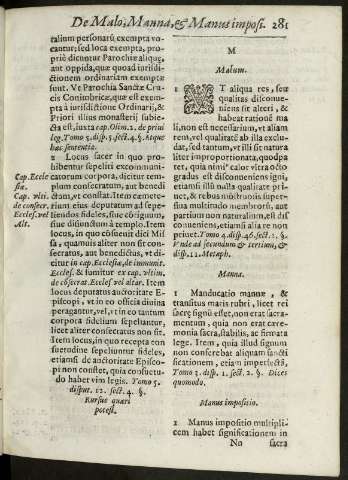 De Malo, Manna, & Manus imposi. 281
ralium personarũ exempta vo-
cantur; sed loca exempta, pro-
priè dicuntur Parochiæ aliquę,
aut oppida, quæ quoad iurisdi-
ctionem ordinariam exemptæ
sunt. Vt Parochia Sanctæ Cru-
cis Conimbricæ, quæ est exem-
pta à iurisdictione Ordinarij, &
Priori illius monasterij subie-
cta est, iuxta cap. Olim. 2. de priui
leg. Tomo 5. disp. 5. sect. 4. §. Atque
hæc sententia.
2 Locus sacer in quo pro-
hibentur sepeliri excommuni-
catorum corpora, dicitur tem-
plum consecratum, aut benedi-
ctum, vt constat. Item cœmete-
rium eius deputatum ad sepe-
liendos fideles, siue cõtiguum,
siue disiunctum à templo. Item
locus, in quo consueuit dici Mis
sa, quamuis aliter non sit con-
secratus, aut benedictus, vt di-
citur in cap. Ecclesiæ, de immunit.
Eccles. & sumitur ex cap. vltim.
de cõsecrat. Eccles. vel altar. Item
locus deputatus auctoritate E-
piscopi, vt in eo officia diuina
peragantur, vel vt in eo tantum
corpora fidelium sepeliantur,
licet aliter consecratus non sit.
Item locus, in quo recepta con
suetudine sepeliuntur fideles,
etiamsi de auctoritate Episco-
pi non constet, quia consuetu-
do habet vim legis. Tomo 5.
disput. 12. sect. 4. §.
Rursus quæri
potest.
Cap. Eccle
siæ.
Cap. vlti.
de consecr.
Eccles. vel
Alt.
M
Malum.
1 ET aliqua res, seu
qualitas disconue-
niens sit alteri, &
habeat rationẽ ma
li, non est necessarium, vt aliam
rem, vel qualitatẽ ab illa exclu-
dat, sed tantum, vt illi sit natura
liter improportionata, quod pa
tet, quia nimi° calor vltra octo
gradus est disconueniens igni,
etiamsi illũ nulla qualitate pri-
uet, & rebus monstrosis super-
flua multitudo membrorũ, aut
partium non naturalium, est dif
conueniens, etiamsi alia re non
priuet. Tomo 4. disp. 46. sect. 1. §.
Vnde ad secundum & tertium, &
disp. 11. Metaph.
Manna.
1 Manducatio mannæ, &
transitus maris rubri, licet rei
sacrę signũ esset, non erat sacra-
mentum, quia non erat cære-
monia sacra, stabilis, ac firmata
lege. Item, quia illud signum
non conferebat aliquam sancti
ficationem, etiam imperfectã,
Tomo 3. disp. 1. sect. 2. §. Dices
quomodo.
Manus impositio.
1 Manus impositio multipli-
cem habet significationem in
Nn sacra